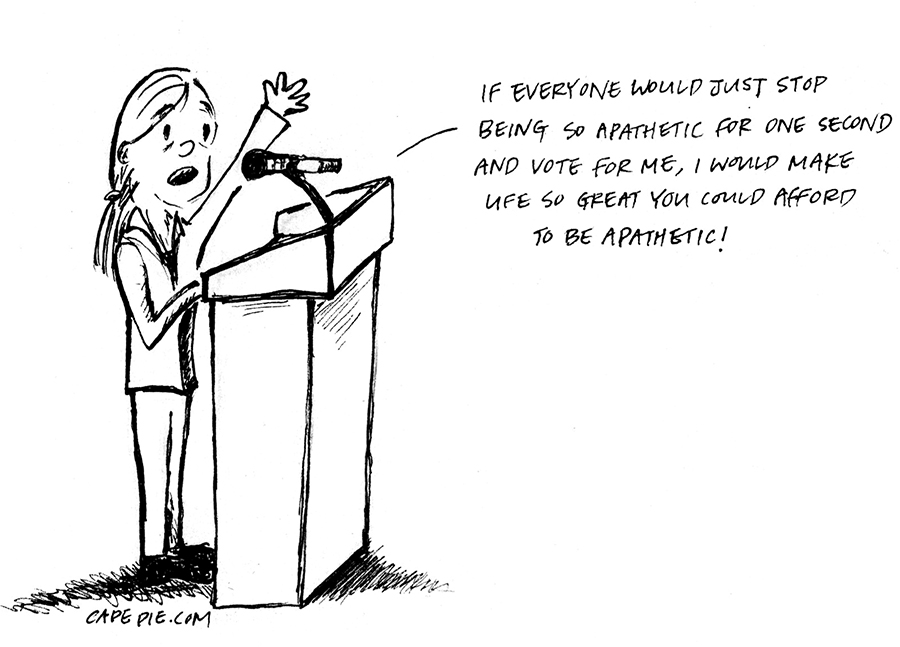 IF EVERYONE WOULD JUST STOP
BEING SO APATHETIC FOR ONE SECOND
AND VOTE FOR ME, I WOULD MAKE
LIFE SO GREAT YOU COULD AFFORD
TO BE APATHETIC!
CAPEPIE.COM